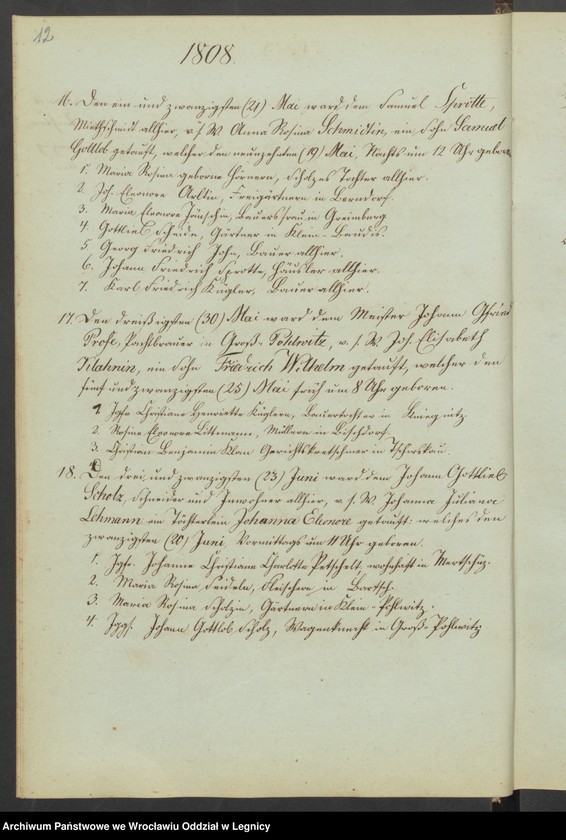 12
1808.
16. Den ein und zwanzigsten (21) Mai ward dem Samuel Sprotte,
Miethschmidt allhier, v. s. W. Anna Rosina Schmidtin, ein Sohn Samuel
Gottlob getauft, welcher den neunzehnten (19) Mai, Nachts um 12 Uhr geboren
1. Maria Rosina geborne Hörnern, Scholzes Tochter allhier.
2. Joh. Eleonore Arltin, Freigärtnern in Berndorf.
3. Maria Eleonore Jänschin, Bauersfrau in
4. Gottlieb Scheide, Gärtner in Klein-Baudis.
5. Georg Friedrich John, Bauer allhier.
6. Johann Friedrich Sprotte, Häusler allhier.
7. Karl Friedrich Kügler, Bauer allhier.
17. Den dreißigsten (30) Mai ward dem Meister Johann Gfried
Pachtbrauer in Groß-Pohlwitz, v. s. W. Joh. Elisabeth
ein Sohn Friedrich Wilhelm getauft, welcher den
fünf und zwanzigsten (25) Mai früh um 8 Uhr geboren.
1 Jgfr. Christiane Henriette Küglern, Bauertochter in
2. Rosine Eleonore Littmann, Müllern in Bischdorf.
3. Christian Benjamin Klem Gerichtskretschmer in
18. Den drei und zwanzigsten (23) Juni ward dem Johann Gottlieb
Scholz, Schneider und Inwohner allhier, v. s. W. Johanna Juliana
Lehmann ein Töchterlein Johanna Eleonore getauft: welches den
zwanzigsten (20) Juni Vormittags um 11 Uhr geboren.
1. Jgfr. Johanne Christiane Charlotte Petschelt, wohnhaft in Mertschütz.
2. Maria Rosina Seideln, Fleischern in Bartsch.
3. Maria Rosina Scholzin, Gärtnern in Klein-Pohlwitz.
4. Jggs. Johann Gottlob Scholz, Wagenknecht in Groß-Pohlwitz
Archiwum Państwowe we Wrocławiu Oddział w Legnicy